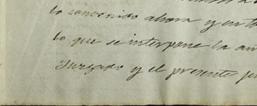 lo convenido ahora y en to
lo que se interpone la au
Juzgado y el presente